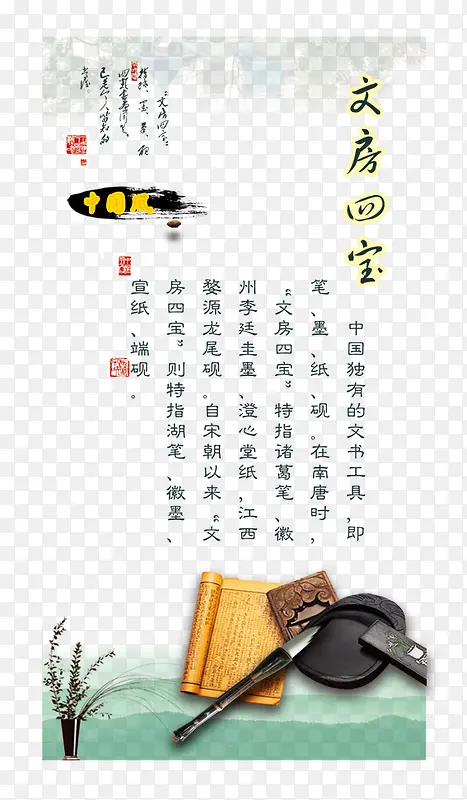 文房四宝
中国独有的文书工具,即
笔、墨、纸、砚。在南唐时,
“文房四宝”特指诸葛笔、徽
州李廷圭墨、澄心堂纸,江西
婺源龙尾砚。自宋朝以来“文
房四宝”则特指湖笔、徽墨、
宣纸、端砚。
“文房四宝”
中国风